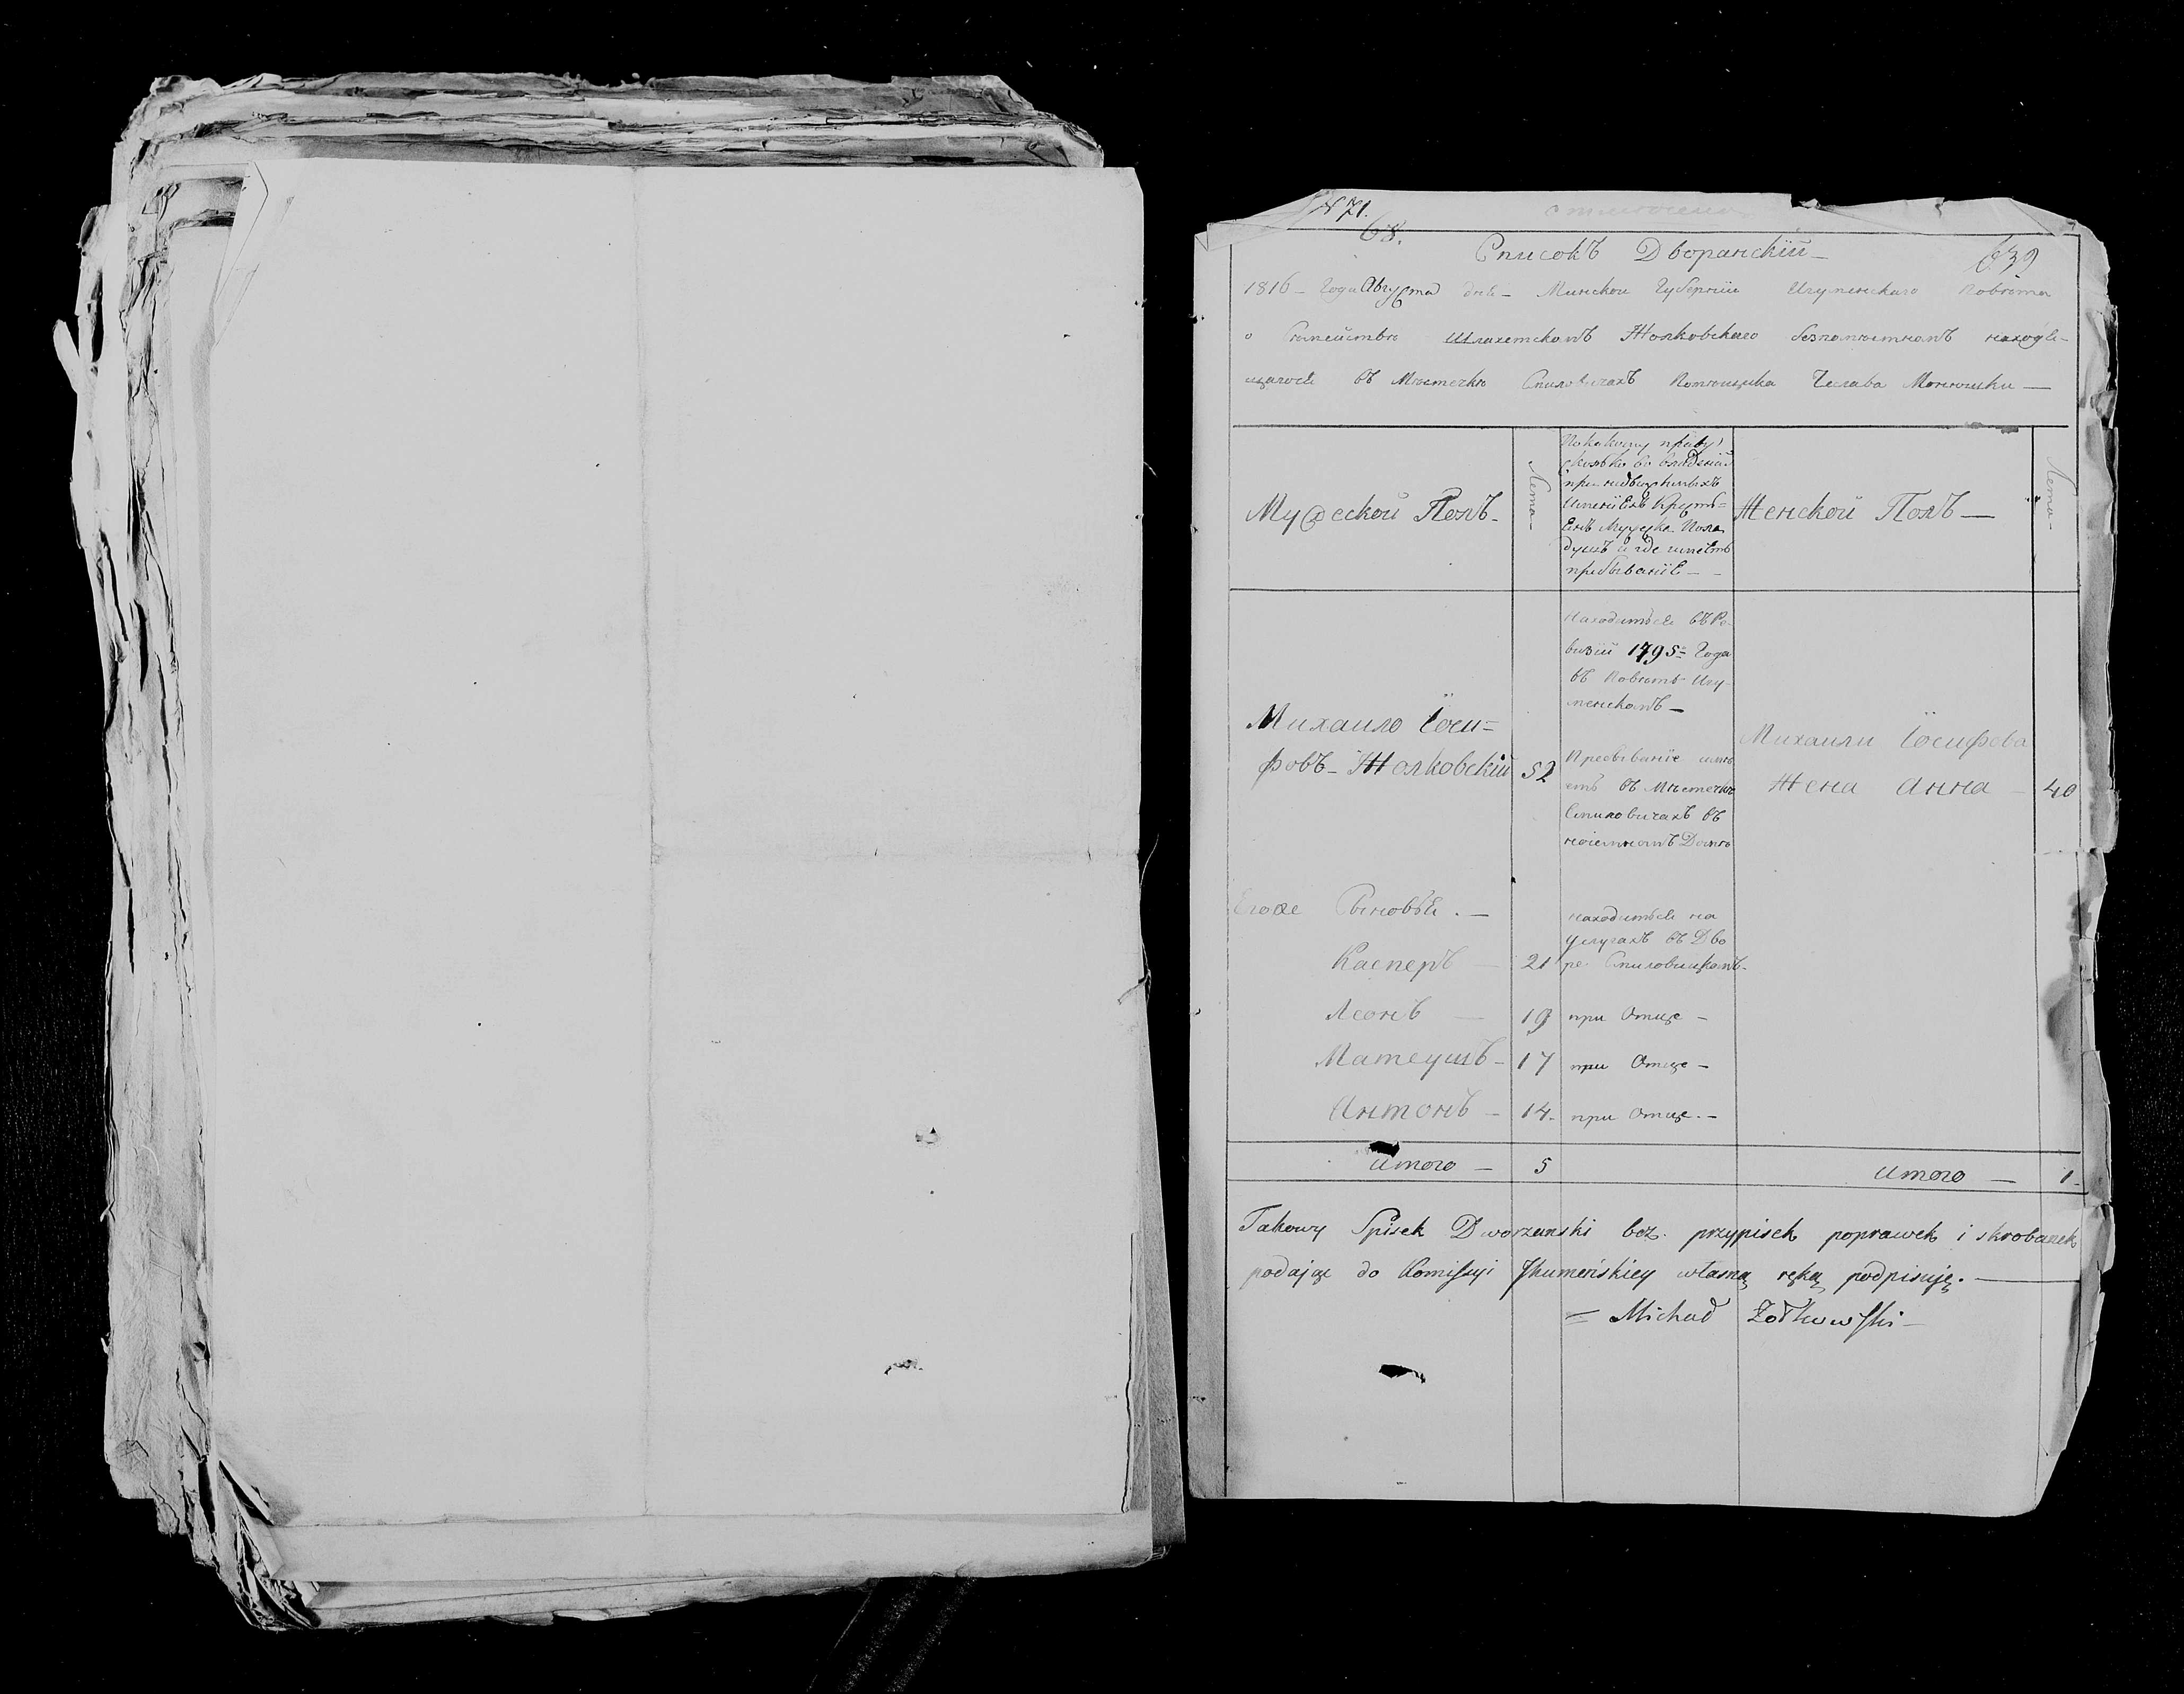 N 71.
68.
Списокъ Дворанскій
639
1816 года Августа дня Минской Губерніи Игуменскаго Повѣта
о Фамѣйствѣ Шлахетскомъ Жолковскаго безпомѣстномъ находе-
щагосе въ Мѣстечкѣ Смиловичахъ Помѣщика Чеслава Монюшки
Мужеской Полъ
Лета
По какому праву
сколько во владеніи
при недвижимыхъ
именіЕхъ Крестъ-
Енъ Мужеска Пола
душъ и где имеЕтъ
пребываніЕ
Женской Полъ
Лета
Находитьсе въ Ре-
визіи 1795 Года
въ Повѣтѣ Игу-
менскомъ
Михаило Іоси=
фовъ Жолковскій
52
Пребываніе имѣ
етъ въ Мѣстечкѣ
Смиловичахъ въ
наіемномъ Домѣ
Михаили Іосифова
Жена Анна
40
Егоже Сыновьи
находитьсе на
услугахъ въ Дво
Касперъ 21 ре Смиловицкомъ
Леонъ 19 при Отце
Матеушъ 17 при Отце
Антонъ 14 при Отце
итого 5 итого 1
Takowy Spisek Dworzanski bez przypisek poprawek i skrobanek
podając do Komissyi Jhumeńskiey własną ręką podpisuję.
= Michał Żołkowski